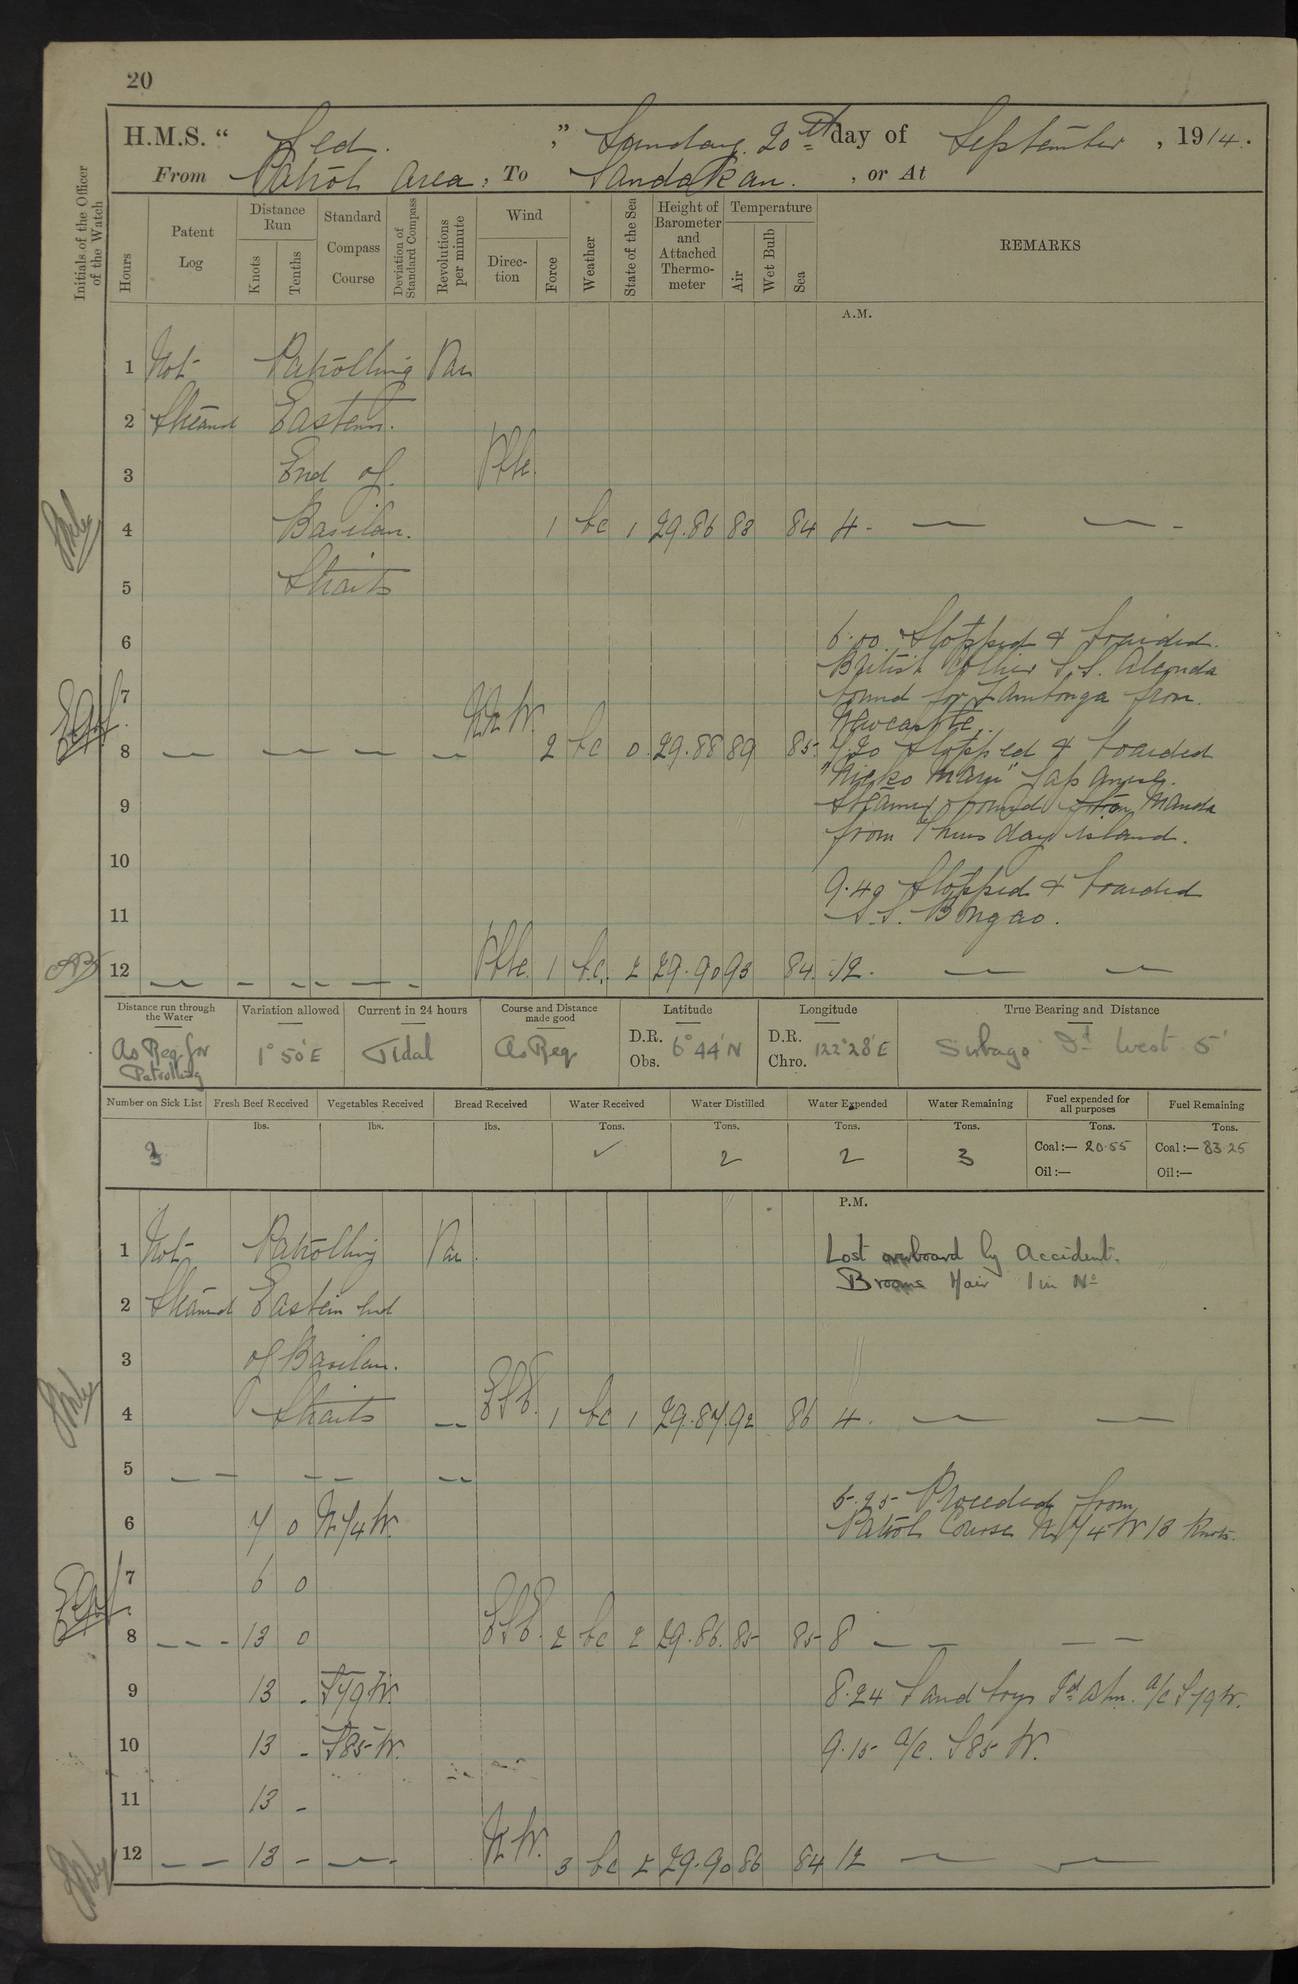 20
H.M.S. " Jed. " Sunday 20th day of September, 1914.
From Patrol Area, To Sandakan. , or At
Initials of the Officer of the Watch
Hours Patent Log Distance Run Knots Tenths Standard Compass Course Deviation of Standard Compass Revolutions per minute Wind Direction Force Weather State of the Sea Height of Barometer and Attached Thermometer Temperature Air Wet Bulb Sea REMARKS
A.M.
1 Not Patrolling Var
2 Stream'd Eastern.
3 End of. Vble.
4 Basilan. 1 bc 1 29.86 83 84 4 -
5 Straits
6 6.00 Stopped & boarded
British Collier S.S. Alconda
7 bound for Zambonga from
Newcastle.
8 NNW. 2 bc 0 29.88 89 85 7.20 Stopped & boarded
"Nikko Maru" Japanese
9 Steamer bound for Manila
from Thursday Island.
10
9.49 Stopped & boarded
11 S.S. Bongao.
12 Vble. 1 bc. 2 29.90 93 84 12.
Distance run through the Water Variation allowed Current in 24 hours Course and Distance made good Latitude Longitude True Bearing and Distance
As Req for Patrolling 1° 50' E Tidal As Req D.R. 6° 44' N Obs. D.R. 122° 28' E Chro. Sibago Id West 5'
Number on Sick List Fresh Beef Received Vegetables Received Bread Received Water Received Water Distilled Water Expended Water Remaining Fuel expended for all purposes Fuel Remaining
lbs. lbs. lbs. Tons. Tons. Tons. Tons. Tons. Tons.
3 2 2 3 Coal:— 20.55 Coal:— 83.25
Oil:— Oil:—
P.M.
1 Not Patrolling Var Lost overboard by Accident.
Brooms Hair 1 in No
2 Stream'd Eastern End
3 of Basilan.
4 Straits ESE. 1 bc 1 29.87 92 86 4.
5
5.25 Proceeded from
6 7 0 N 1/4 W. Patrol Course N 1/4 W 13 Knots.
7 6 0
8 13 0 ESE. 2 bc 2 29.86 85 85 8
9 13 - S79W. 8.24 Sandboys Id abm. a/c S79W.
10 13 - S85W. 9.15 a/c. S85W.
11 13 -
12 13 - NW. 3 bc 2 29.90 86 84 12